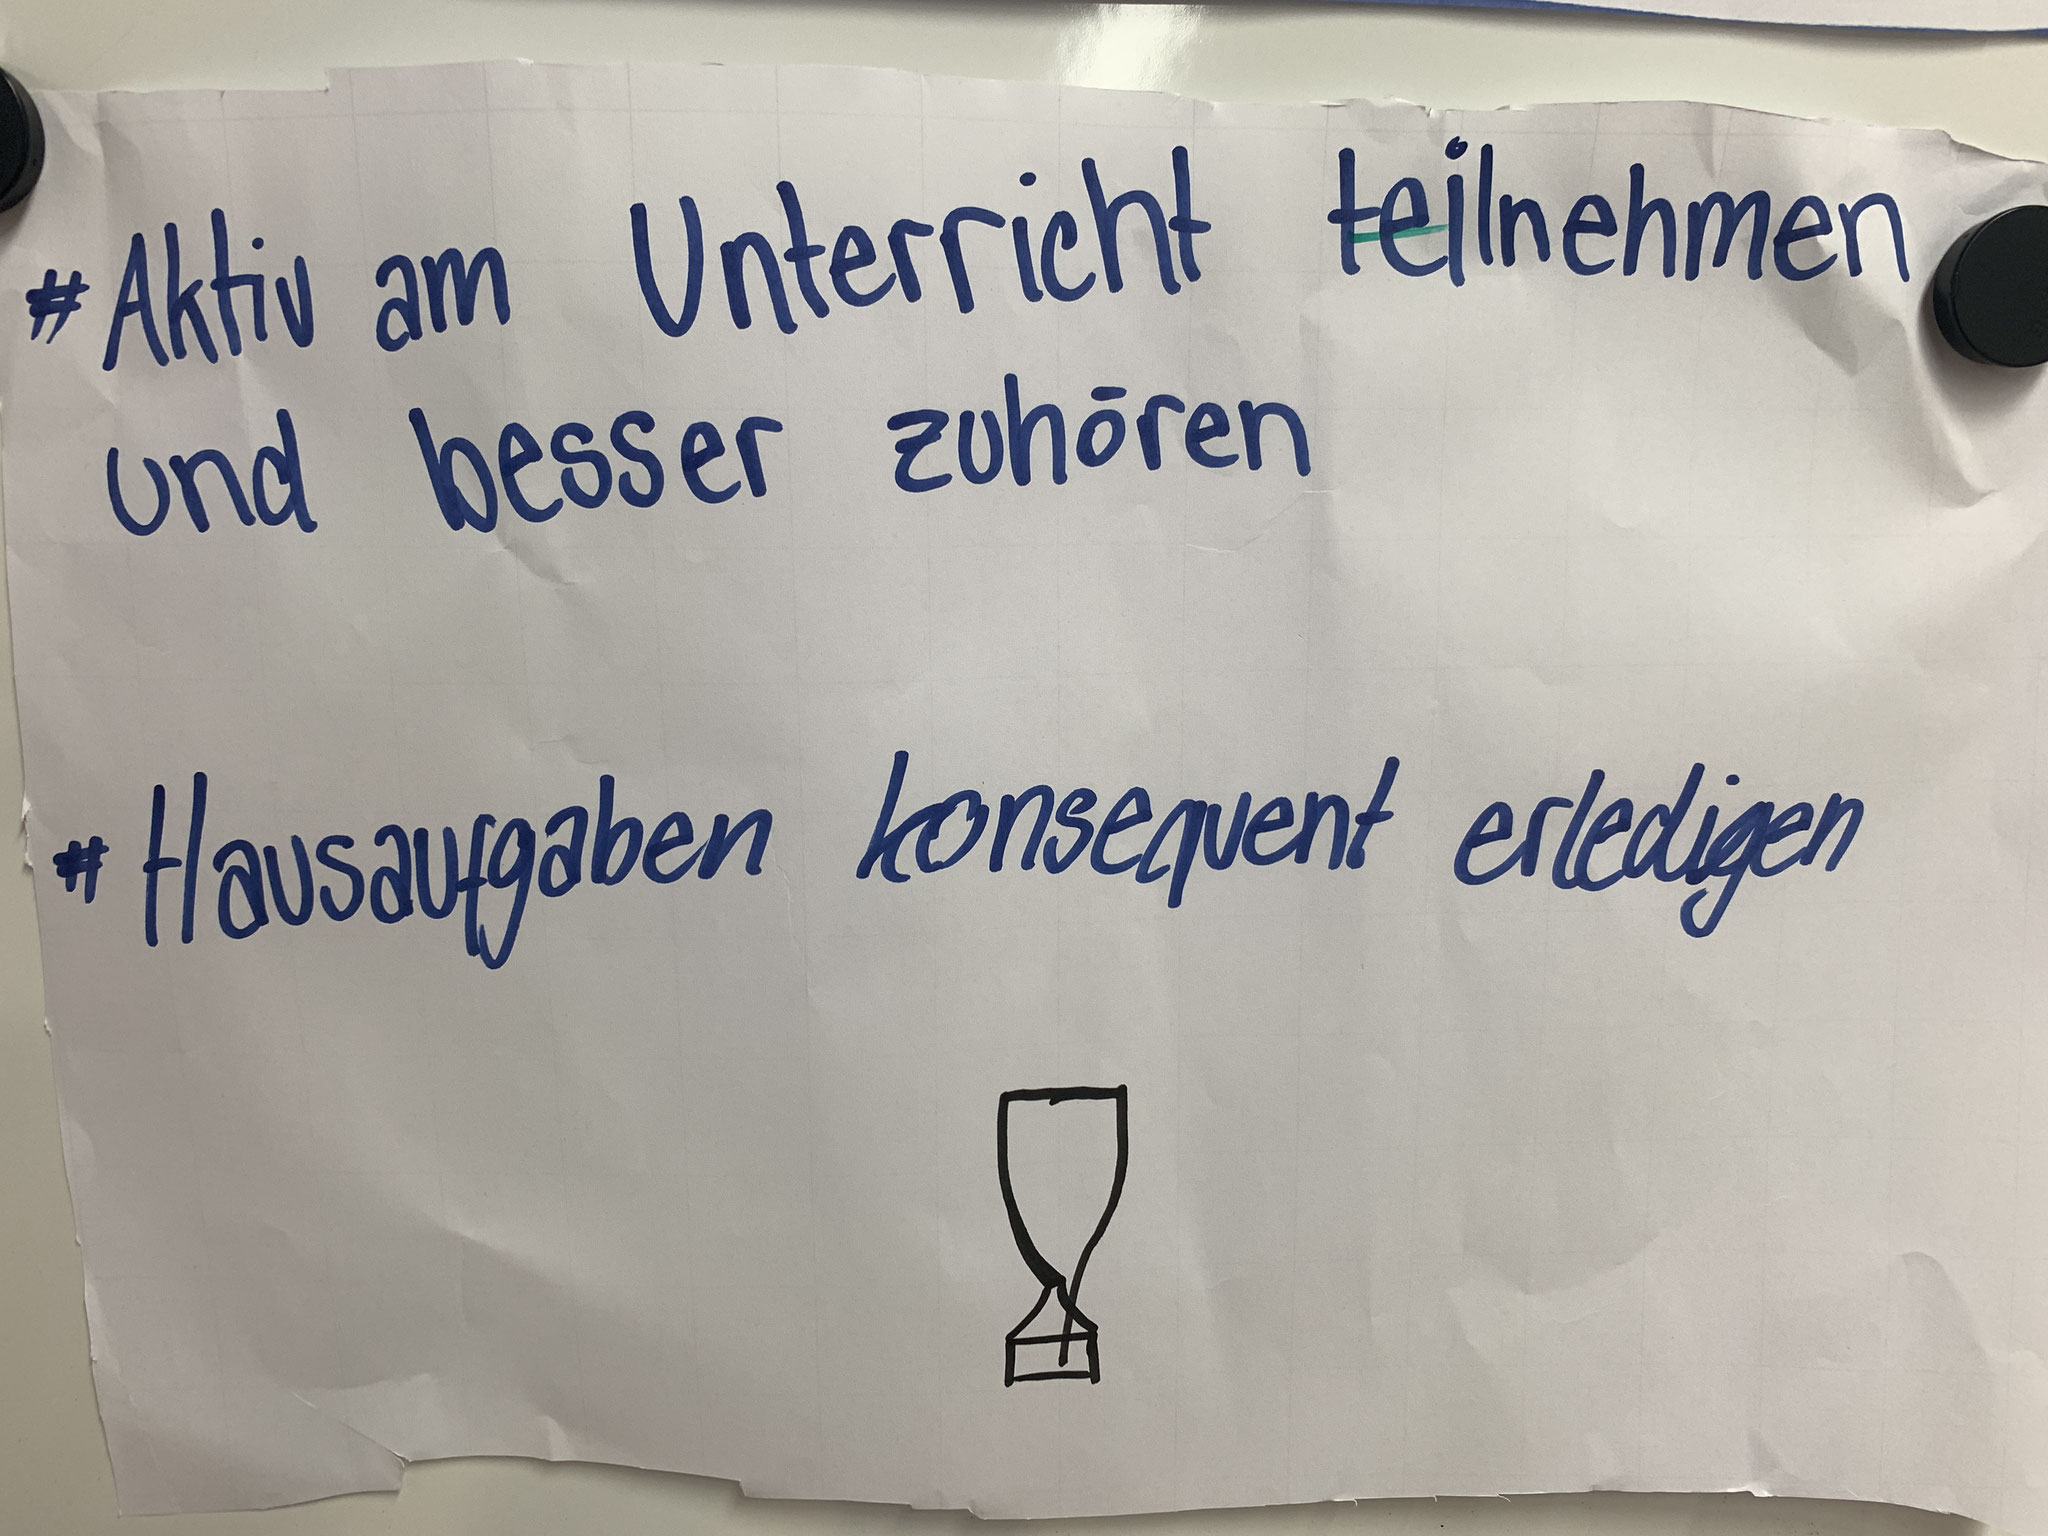 # Aktiv am Unterricht teilnehmen
und besser zuhören
# Hausaufgaben konsequent erledigen